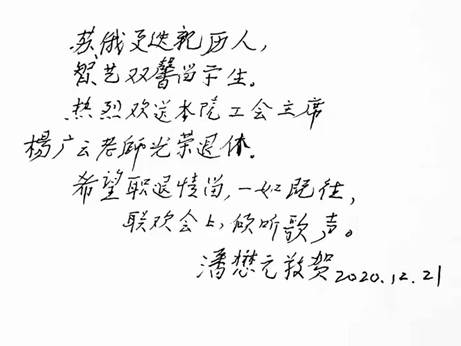 苏俄更迭亲历人，
贤艺双馨留学生。
热烈欢送本院工会主席
楊广云老師光荣退休。
希望职退情留，一如既往，
联欢会上，倾听歌声。
潘懋元敬贺2020.12.21